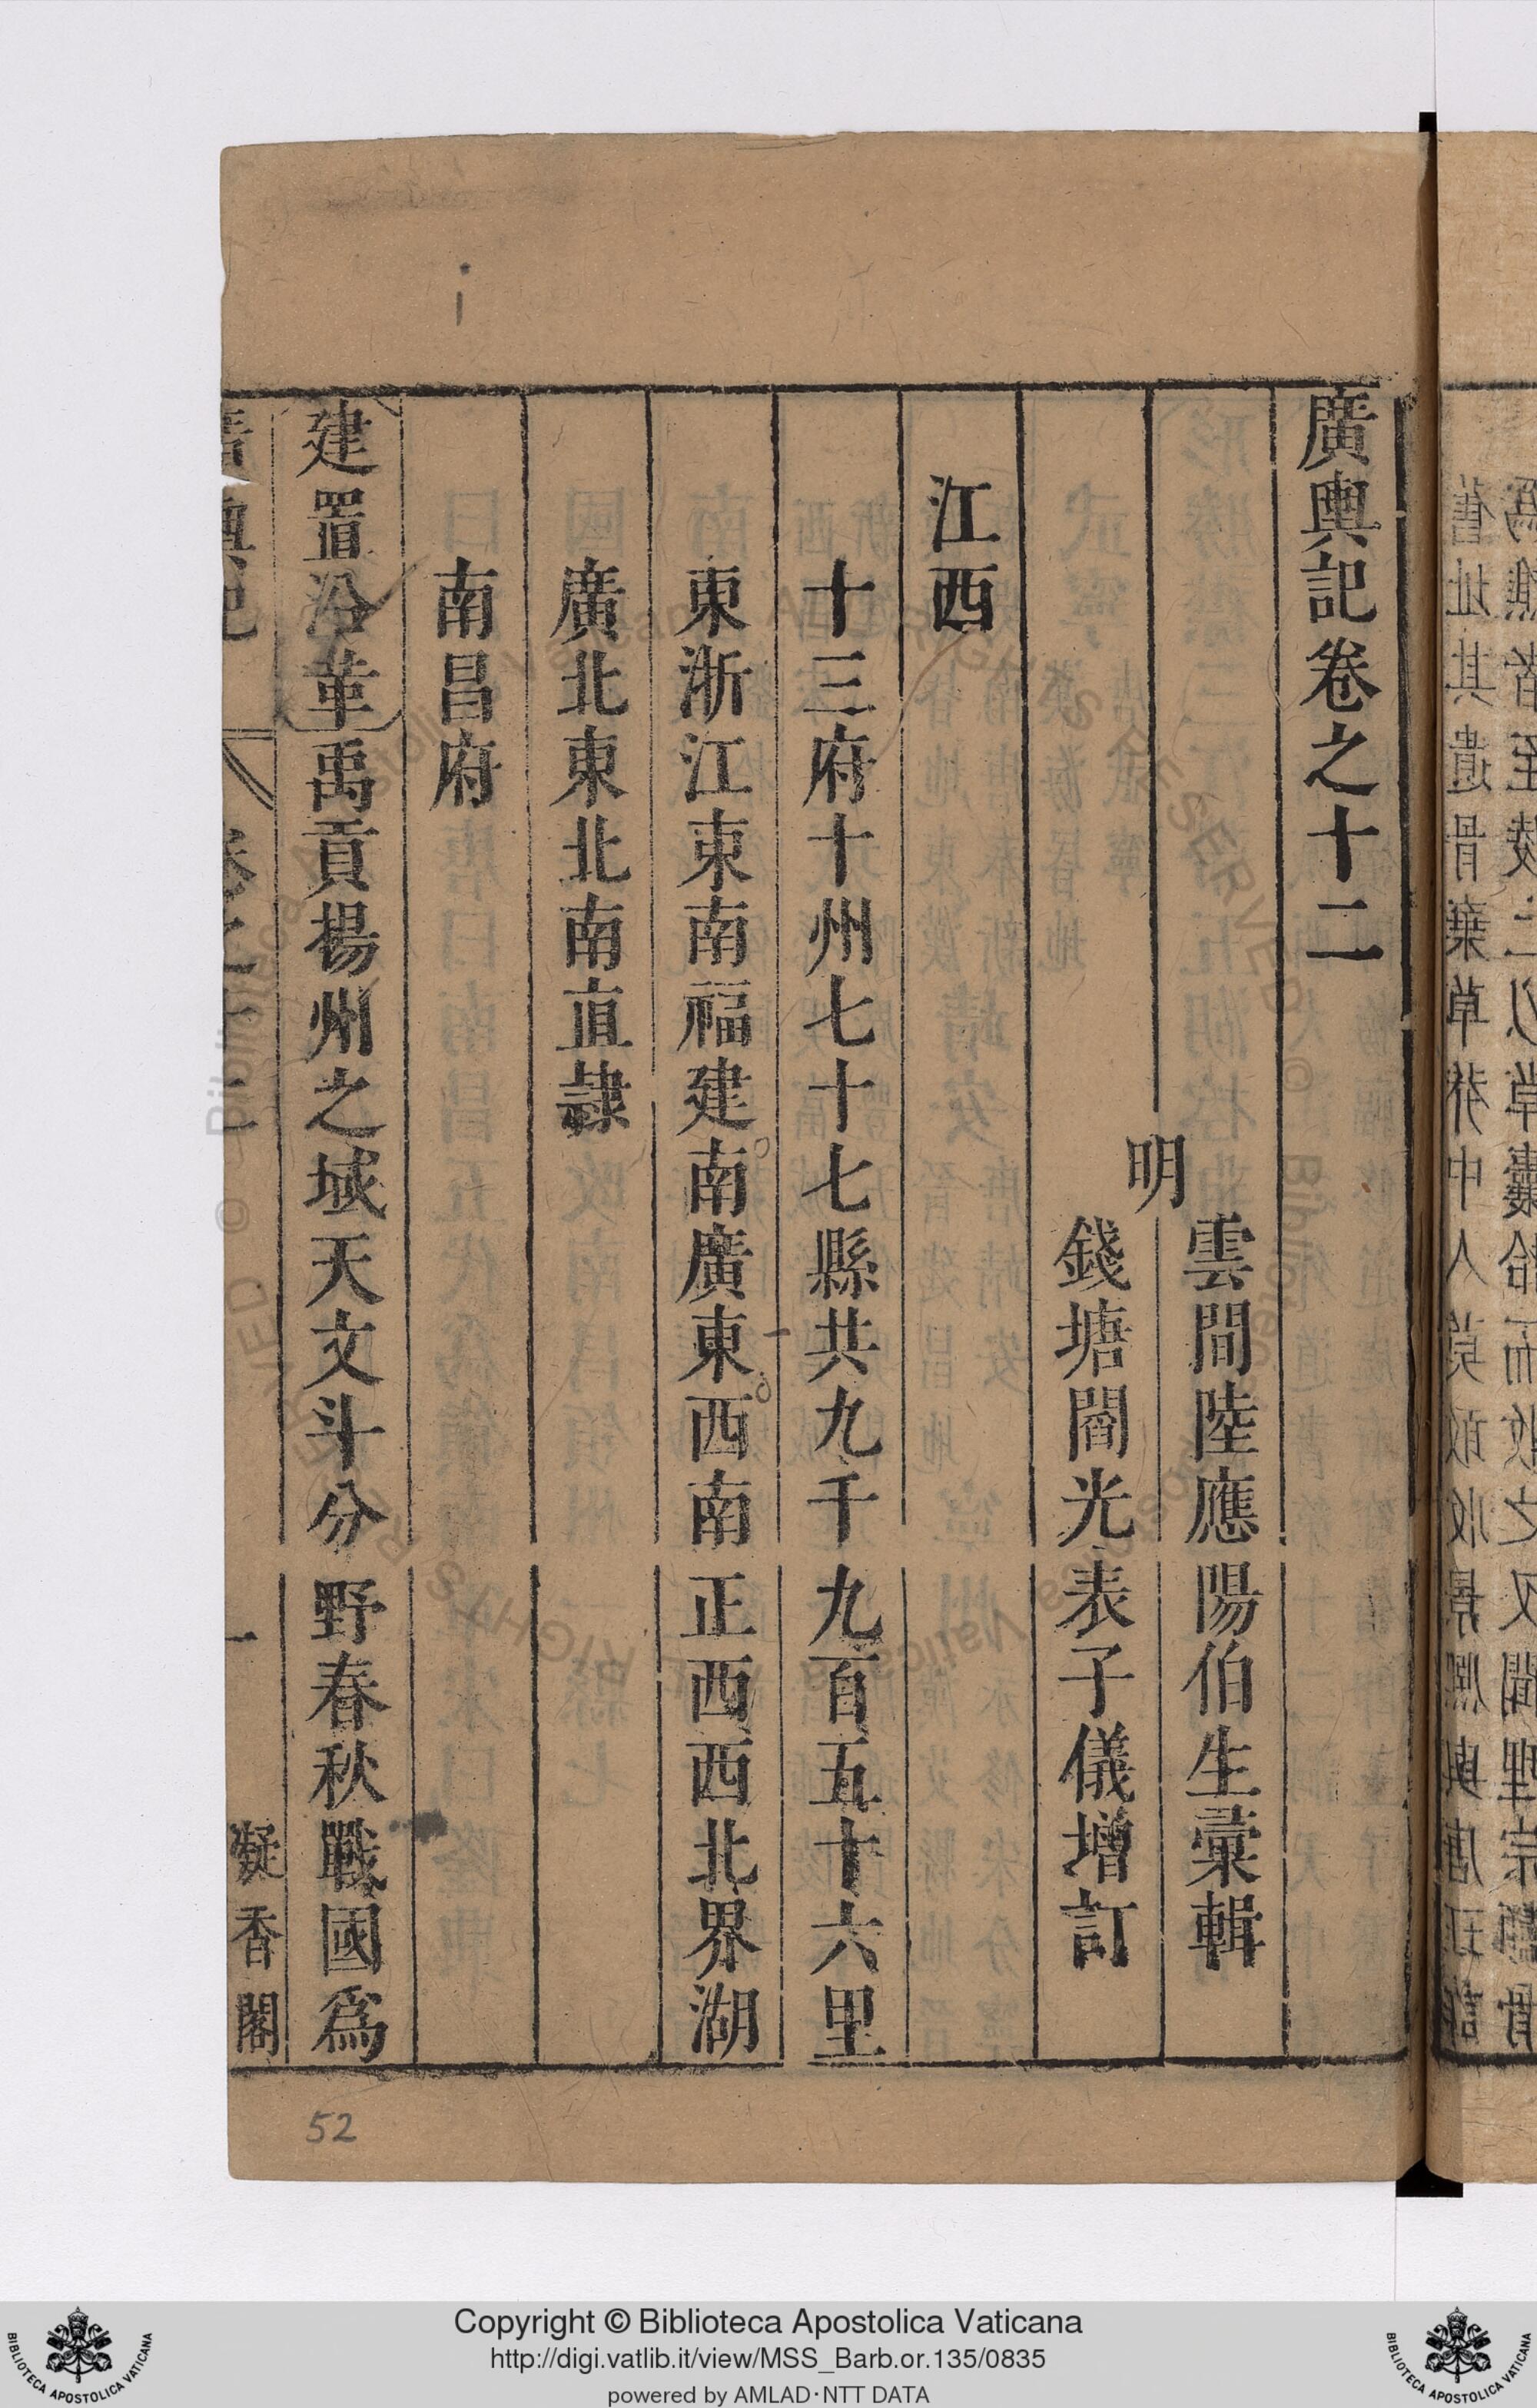 廣輿記卷之十二
明
雲間陸應陽伯生彙輯
錢塘閻光表子儀增訂
江西
十三府十州七十七縣共九千九百五十六里
東浙江東南福建南廣東西南正西西北界湖
廣北東北南直隸
南昌府
建置沿革禹貢揚州之域天文斗分野春秋戰國爲
廣輿記 卷之十二 一 凝香閣
i
52
Copyright © Biblioteca Apostolica Vaticana
http://digi.vatlib.it/view/MSS_Barb.or.135/0835
powered by AMLAD·NTT DATA
BIBLIOTECA APOSTOLICA VATICANA
BIBLIOTECA APOSTOLICA VATICANA